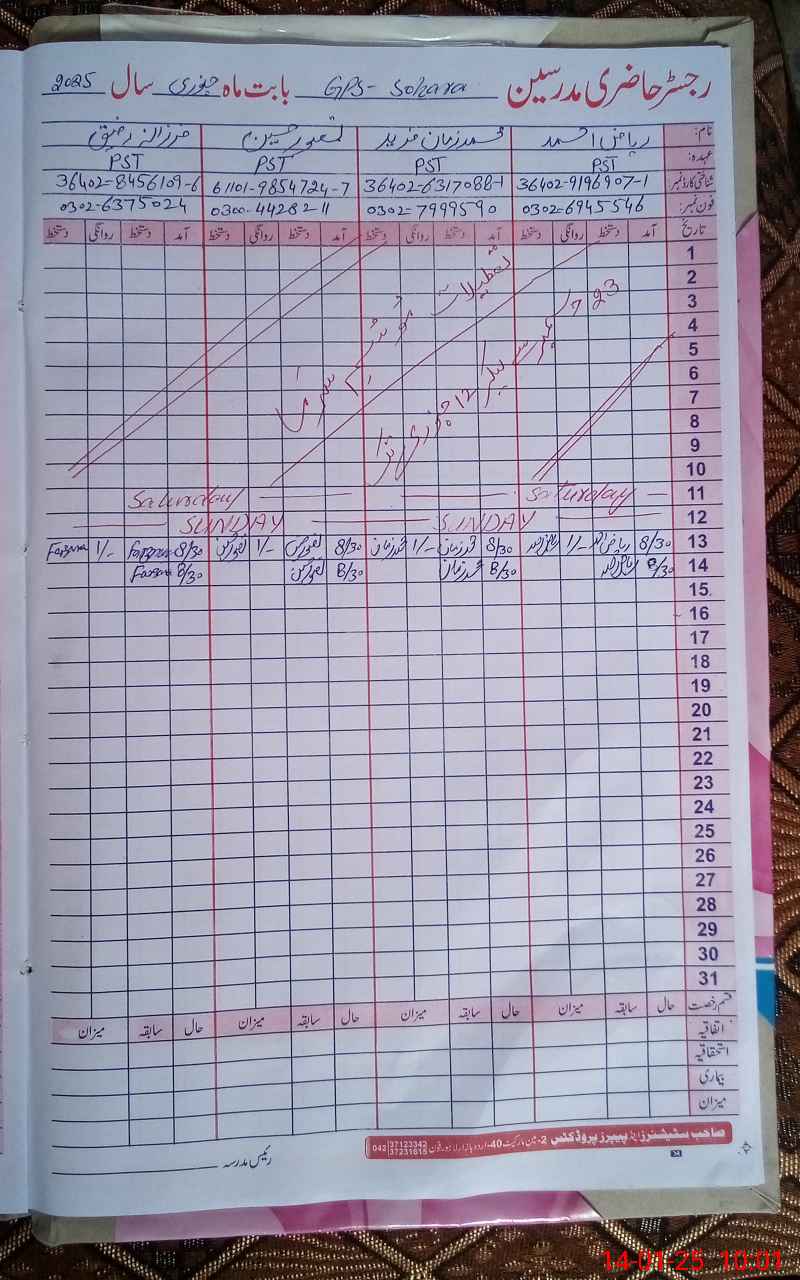 رجسٹر حاضری مدرسین GPS- Sohara بابت ماہ جنوری سال 2025
نام: ریاض احمد محمد زمان فرید تصور حسین فرزانہ رفیق
عہدہ: PST PST PST PST
شناختی کارڈ نمبر 36402-9196907-1 36402-6317088-1 61101-9854724-7 36402-8456109-6
فون نمبر: 0302-6945546 0302-7999590 0300-4428211 0302-6375024
تاریخ آمد دستخط روانگی دستخط آمد دستخط روانگی دستخط آمد دستخط روانگی دستخط آمد دستخط روانگی دستخط
1
2
تعطیلات موسم سرما
3
23 دسمبر سے لیکر 12 جنوری تک
4
5
6
7
8
9
10
11 Saturday Saturday
12 SUNDAY SUNDAY
13 8/30 ریاض احمد 1/- ریاض احمد 8/30 محمد زمان 1/- محمد زمان 8/30 تصور حسین 1/- تصور حسین 8/30 Farzana 1/- Farzana
14 8/30 ریاض احمد 8/30 محمد زمان 8/30 تصور حسین 8/30 Farzana
15
16
17
18
19
20
21
22
23
24
25
26
27
28
29
30
31
قسم رخصت حال سابقہ میزان حال سابقہ میزان حال سابقہ میزان حال سابقہ میزان
اتفاقیہ
استحقاقیہ
بیماری
میزان
صاحب سٹیشنرز اینڈ پیپرز پروڈکٹس 2-مین مارکیٹ 40-اردو بازار لاہور فون 042 37123342 37231615
رئیس مدرسہ
14-01-25 10:01